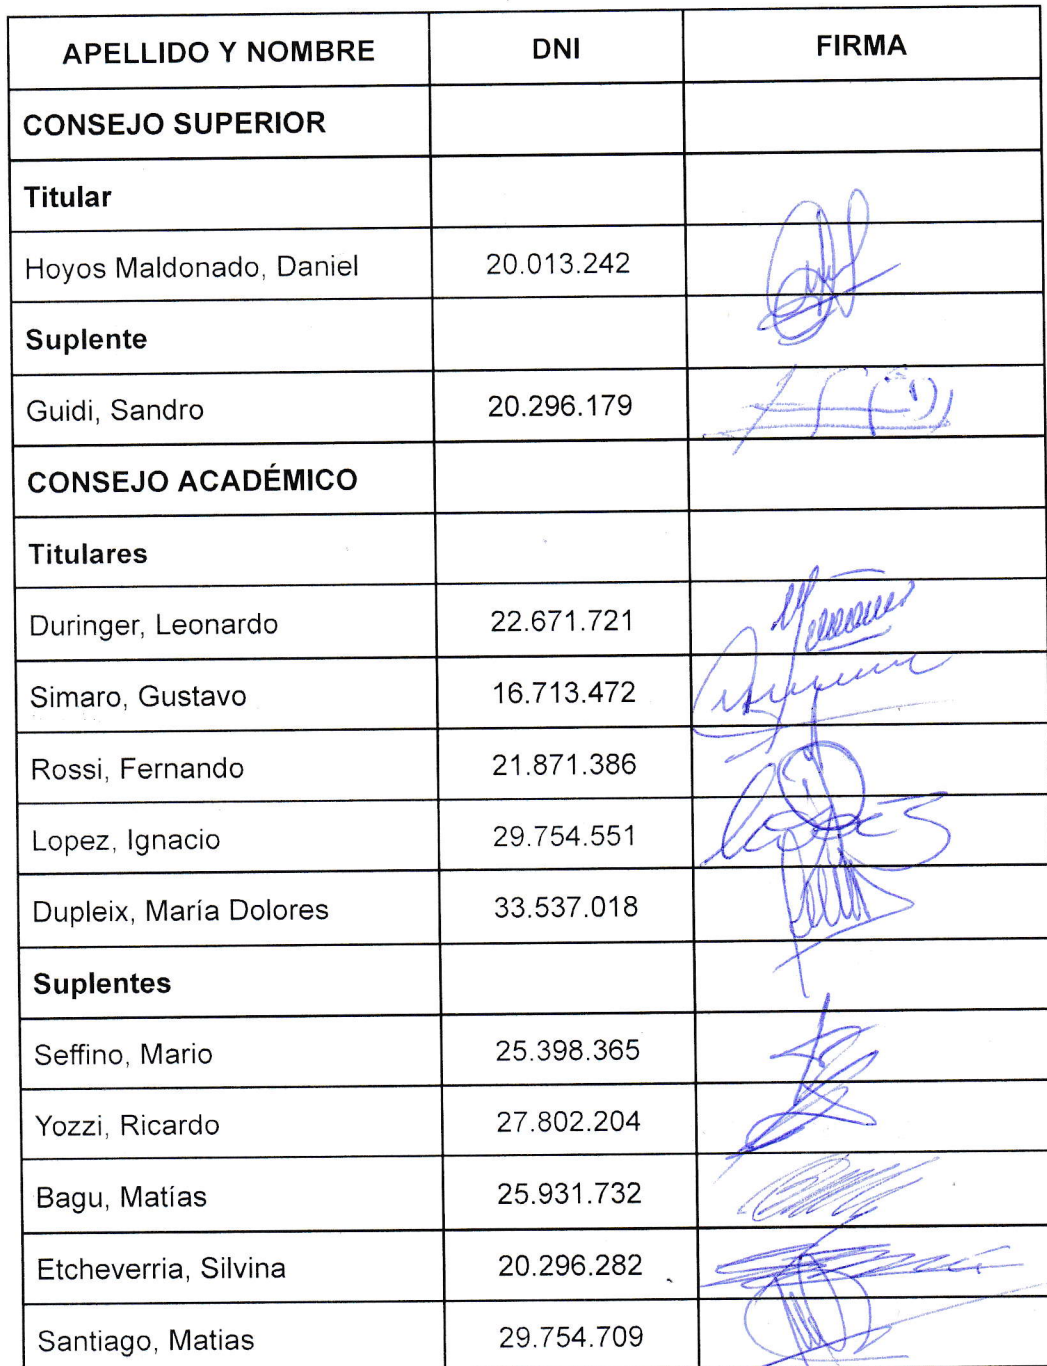 APELLIDO Y NOMBRE DNI FIRMA
CONSEJO SUPERIOR
Titular
Hoyos Maldonado, Daniel 20.013.242
Suplente
Guidi, Sandro 20.296.179
CONSEJO ACADÉMICO
Titulares
Duringer, Leonardo 22.671.721
Simaro, Gustavo 16.713.472
Rossi, Fernando 21.871.386
Lopez, Ignacio 29.754.551
Dupleix, María Dolores 33.537.018
Suplentes
Seffino, Mario 25.398.365
Yozzi, Ricardo 27.802.204
Bagu, Matías 25.931.732
Etcheverria, Silvina 20.296.282
Santiago, Matias 29.754.709